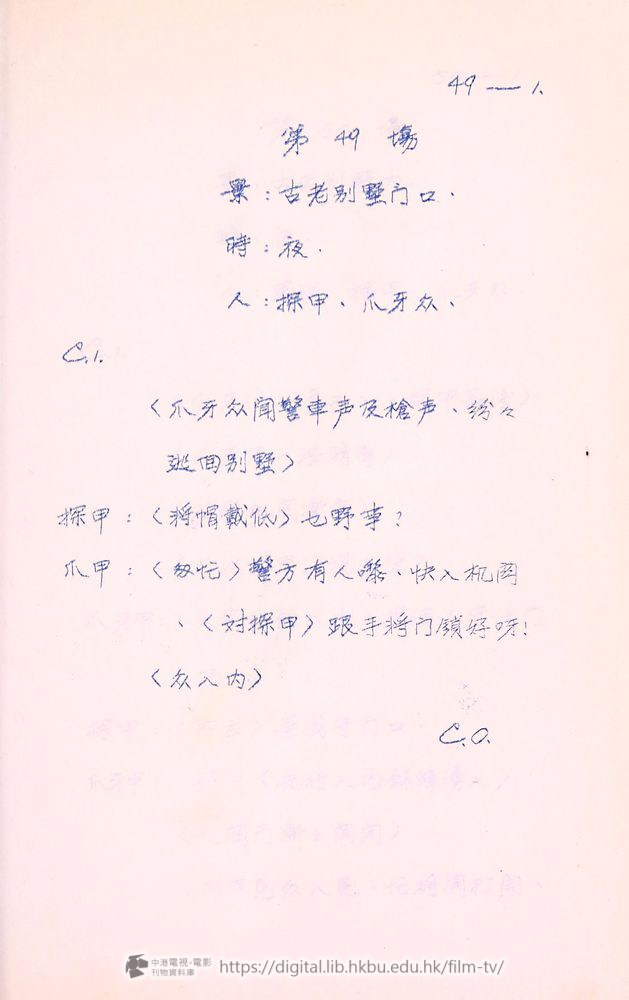 49 — 1.
第 49 場
景：古老別墅门口．
時：夜．
人：探甲、爪牙众、
C.I.
〈爪牙众闻警車声及槍声、纷々
逃回别墅〉
探甲：〈将帽戴低〉乜野事？
爪甲：〈匆忙〉警方有人嚟、快入机関
、〈对探甲〉跟手将门鎖好呀！
〈众入内〉
C.O.
中港電視·電影
刊物資料庫
https://digital.lib.hkbu.edu.hk/film-tv/